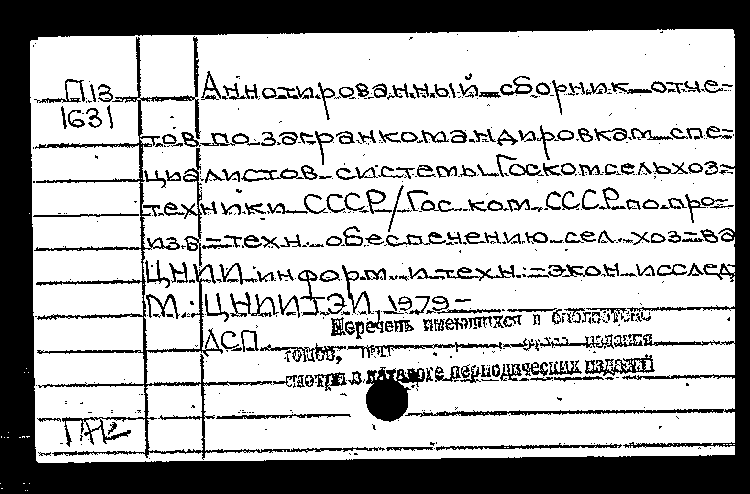 П13
1631
Аннотированный сборник отче-
тов по загранкомандировкам спе-
циалистов системы Госкомсельхоз-
техники СССР/Гос. ком. СССР по про-
изв-техн. обеспечению сел. хоз-ва
ЦНИИ информ. и техн.-экон. исслед
М.: ЦНИИТЭИ, 1979-
ДСП.
Перечень имеющихся в библиотеке
томов, издания
смотри в каталоге периодических изданий